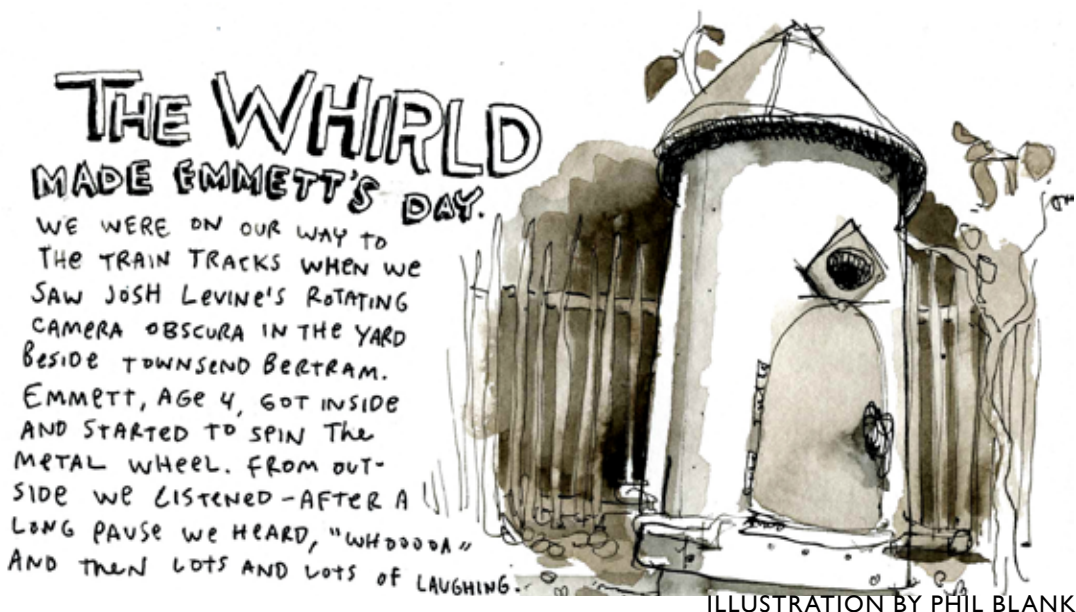 THE WHIRLD
MADE EMMETT'S DAY.
WE WERE ON OUR WAY TO
THE TRAIN TRACKS WHEN WE
SAW JOSH LEVINE'S ROTATING
CAMERA OBSCURA IN THE YARD
BESIDE TOWNSEND BERTRAM.
EMMETT, AGE 4, GOT INSIDE
AND STARTED TO SPIN THE
METAL WHEEL. FROM OUT-
SIDE WE LISTENED - AFTER A
LONG PAUSE WE HEARD, "WHOOOOA"
AND THEN LOTS AND LOTS OF LAUGHING.
ILLUSTRATION BY PHIL BLANK